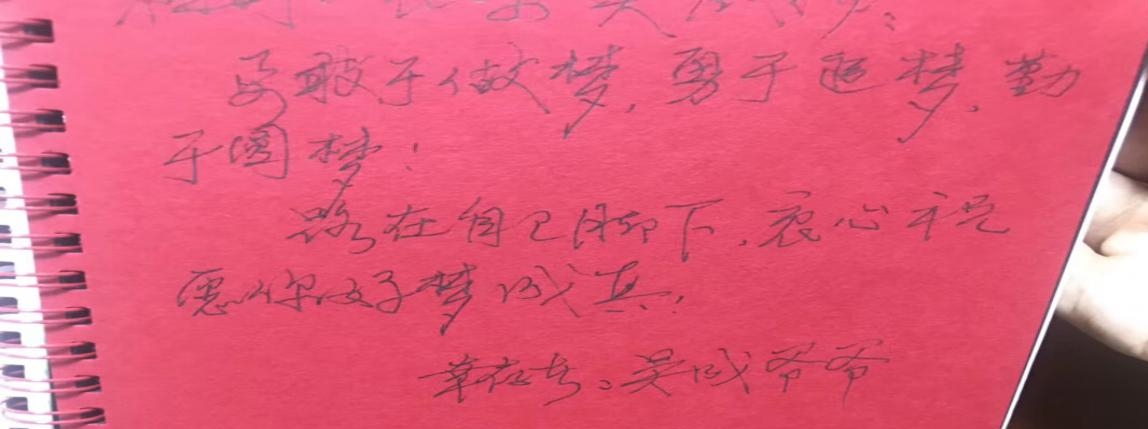 要敢于做梦,勇于追梦,勤
于圆梦!
路在自己脚下,衷心祝
愿你好梦成真!
吴成爷爷